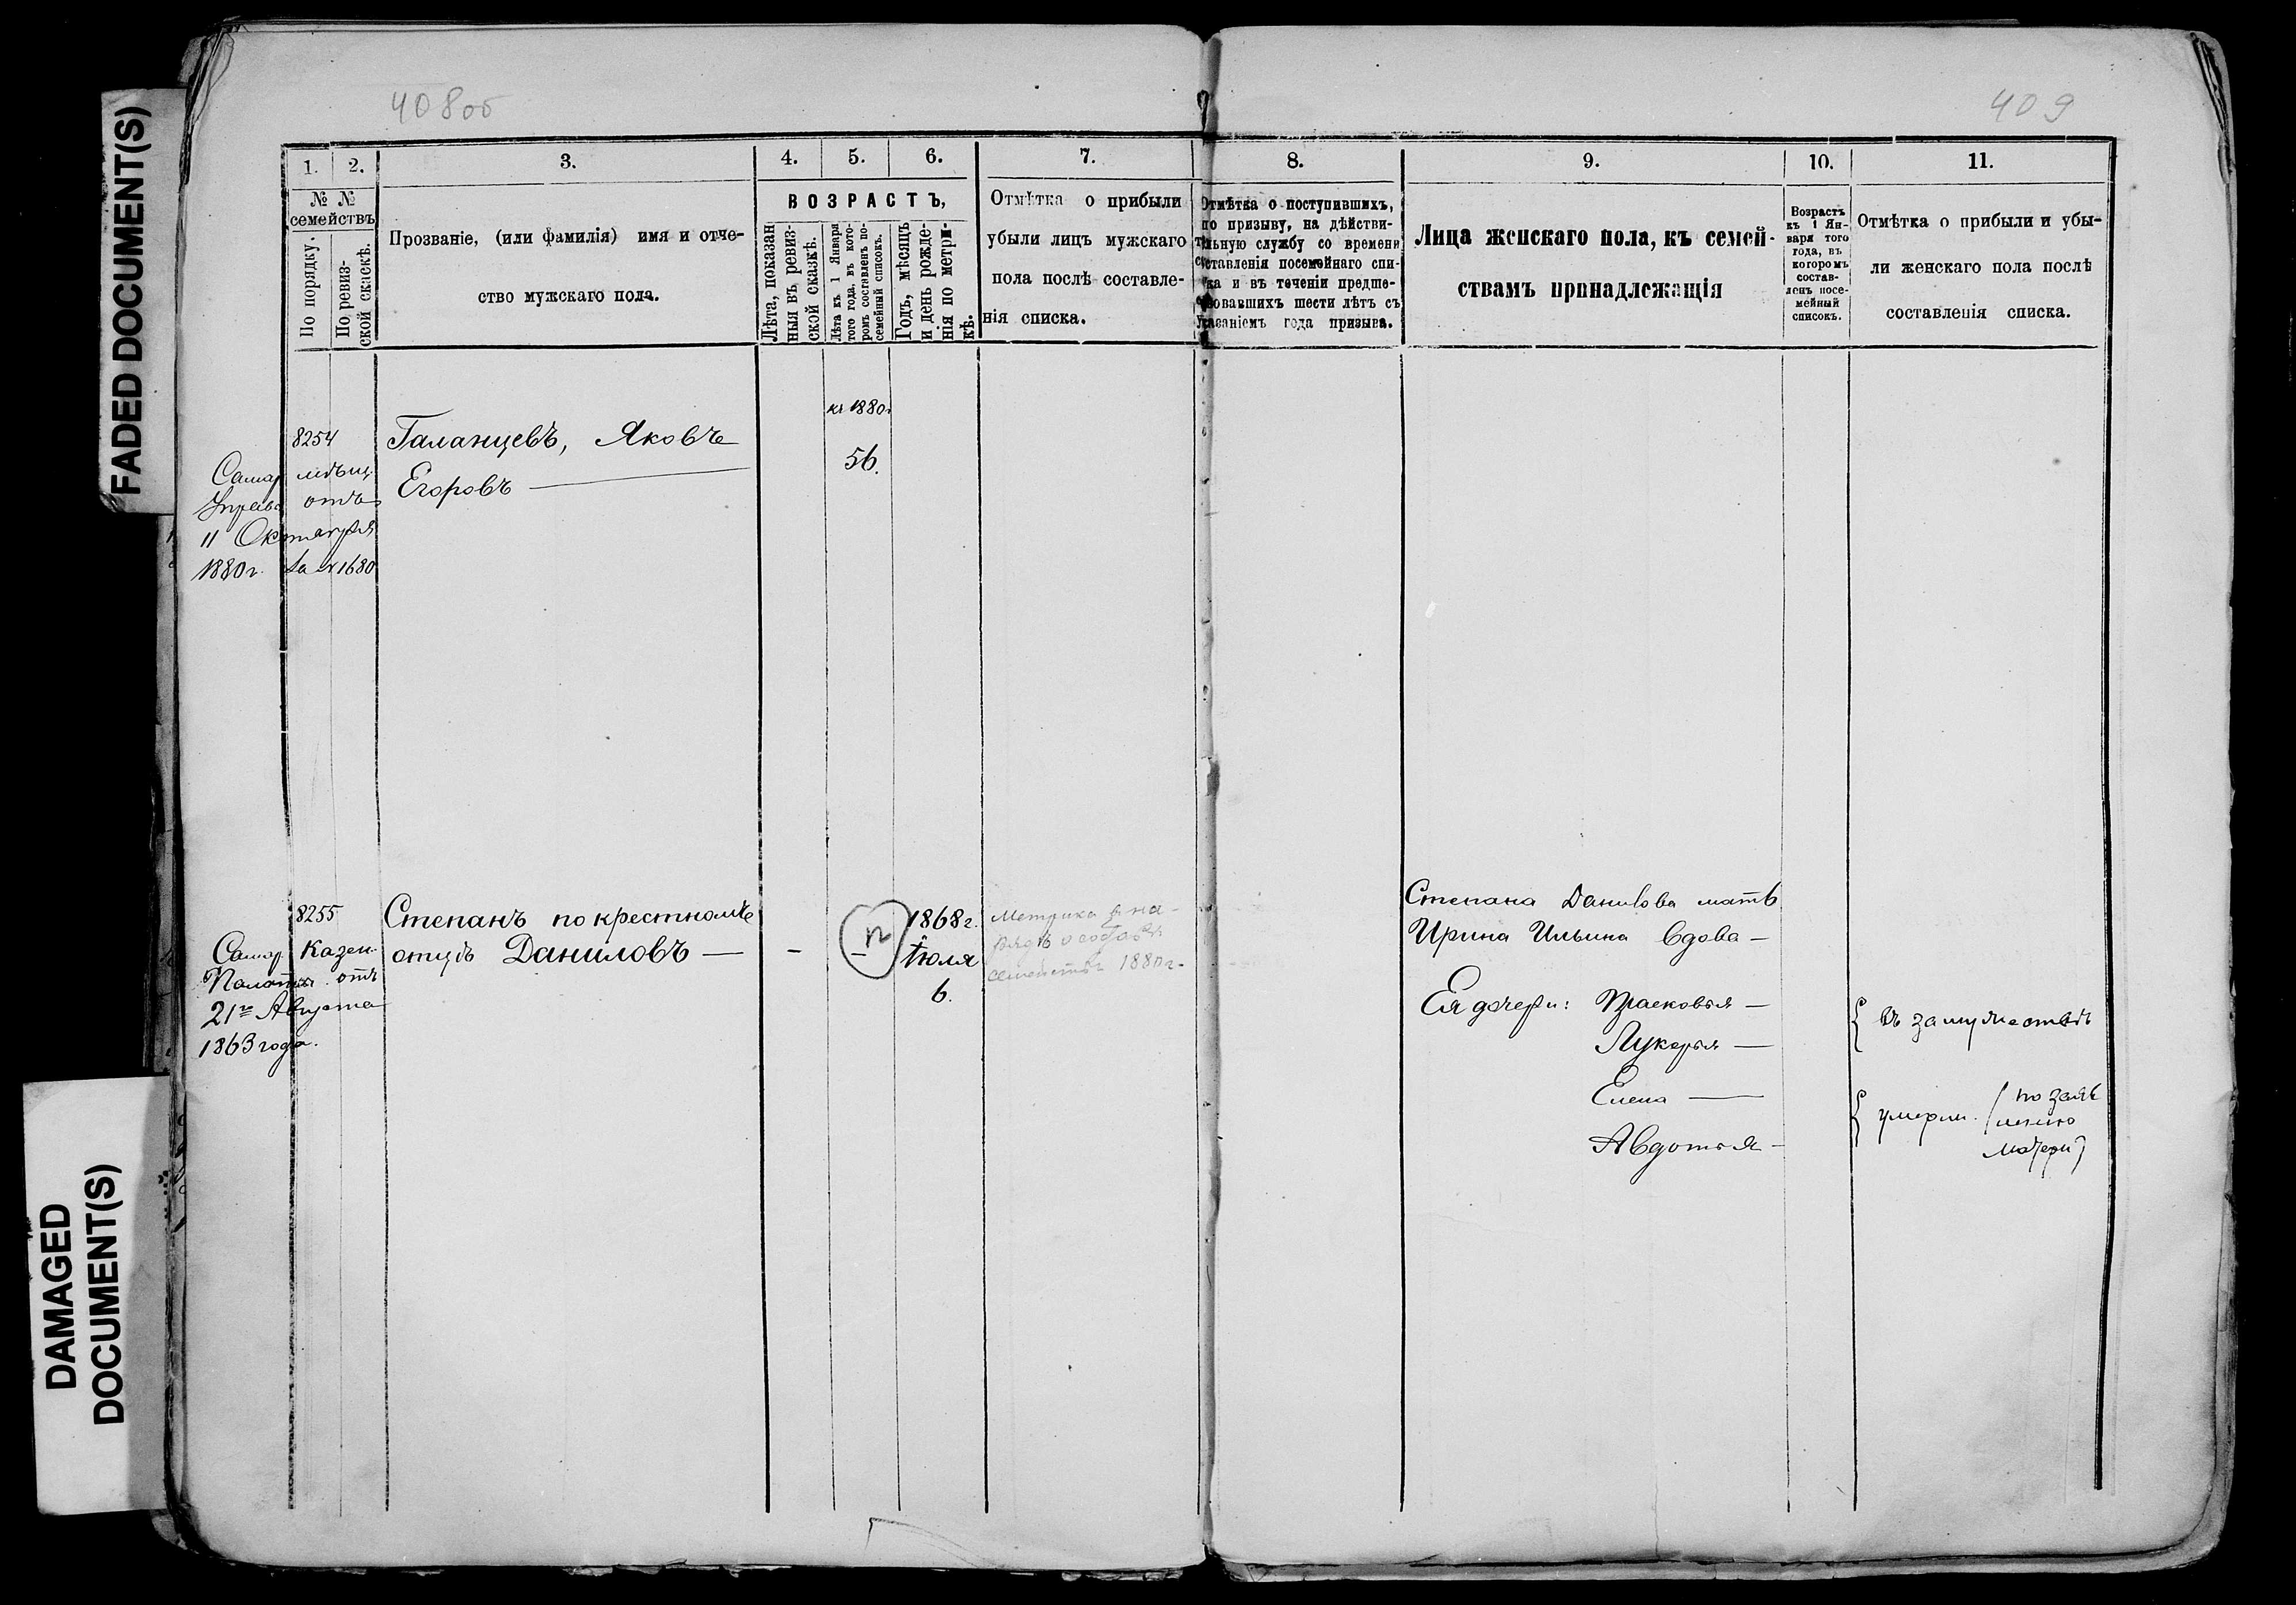 FADED DOCUMENT(S)
DAMAGED
DOCUMENT(S)
408об
409
1.
2.
3.
4.
5.
6.
7.
8.
9.
10.
11.
№ №
семействъ
По порядку.
По ревиз-
ской сказкѣ.
Прозваніе, (или фамилія) имя и отче-
ство мужскаго пола.
ВОЗРАСТЪ,
Лѣта, показан
ныя въ ревиз-
ской сказкѣ.
Лѣта къ 1 Января
того года, въ кото-
ромъ составленъ по-
семейный списокъ.
Годъ, мѣсяцъ
и день рожде-
нія по метри-
кѣ.
Отмѣтка о прибыли
убыли лицъ мужскаго
пола послѣ составле-
нія списка.
Отмѣтка о поступившихъ,
по призыву, на дѣйстви-
тельную службу со времени
составленія посемейнаго спи-
ска и въ теченіи предше-
ствовавшихъ шести лѣтъ съ
указаніемъ года призыва.
Лица женскаго пола, къ семей-
ствамъ принадлежащія
Возрастъ
къ 1 Ян-
варя того
года, въ
которомъ
состав-
ленъ посе-
мейный
списокъ.
Отмѣтка о прибыли и убы-
ли женскаго пола послѣ
составленія списка.
8254
Самар. мѣщ.
Управы отъ
11 Октября
1880г. за № 1680
Галанцевъ, Яковъ
Егоровъ —
къ 1880г
56.
8255
Самар. Казен.
Палаты отъ
21го Августа
1863 года.
Степанъ по крестному
отцу Даниловъ —
-
12
1868г.
Іюля
6.
Метрика
семействъ 1880г.
Степана Данилова мать
Ирина Ильина вдова —
Ея дочери: Прасковья —
Лукерья —
Елена —
Авдотья —
{ въ замужествѣ
{ умерли. (по заяв
ленію
матери)